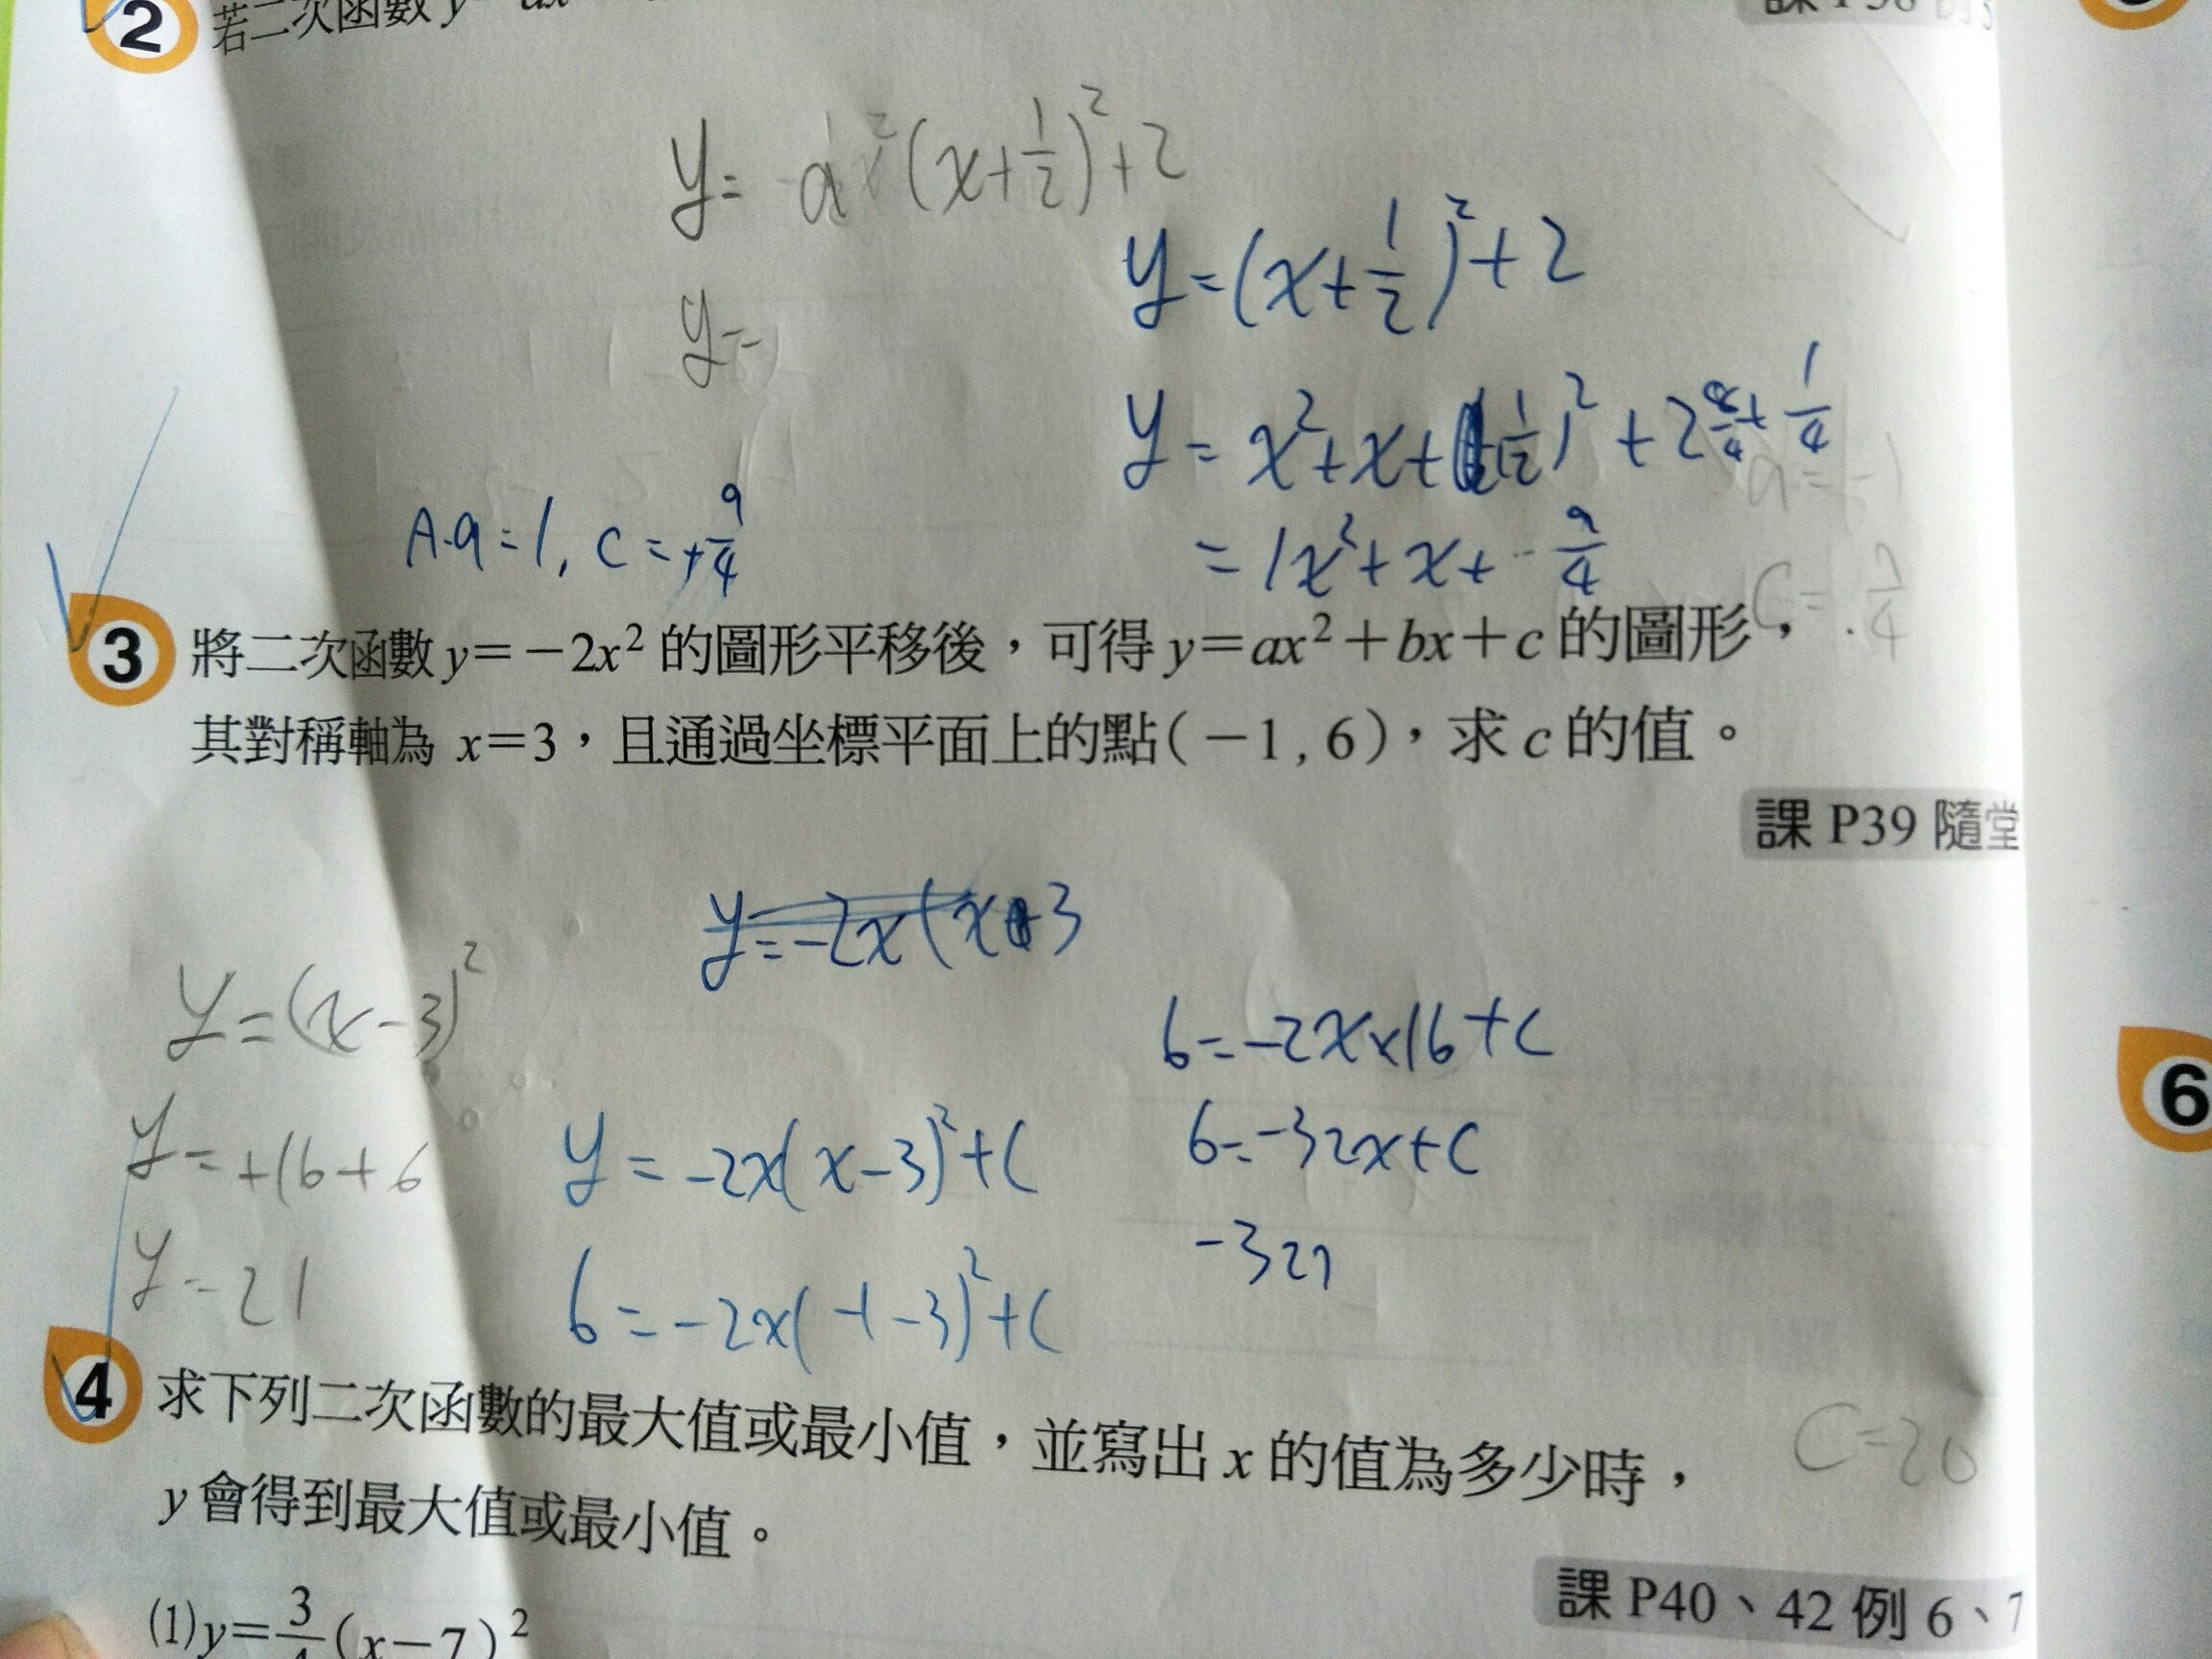 2 若二次函數 y
y= a (x+1/2)²+2
y=(x+1/2)²+2
y=
y=x²+x+(1/2)²+2 +1/4
A.a=1, c=+9/4
=1x²+x+ 9/4
3 將二次函數 y=-2x² 的圖形平移後，可得 y=ax²+bx+c 的圖形，
其對稱軸為 x=3，且通過坐標平面上的點(-1,6)，求 c 的值。
課 P39 隨堂
y=-2x(x-3
y=(x-3)²
6=-2x×16+c
y=+16+6
y=-2x(x-3)²+c
6=-32x+c
y=21
6=-2x(-1-3)²+c
-32
4 求下列二次函數的最大值或最小值，並寫出 x 的值為多少時，
c=20
y 會得到最大值或最小值。
課 P40、42 例 6、7
(1)y=3/4(x-7)²
6